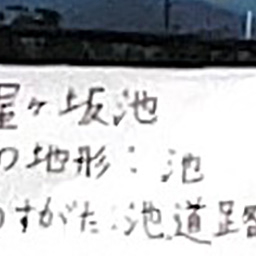 屋ヶ坂池
の地形：池
のすがた：池、道路